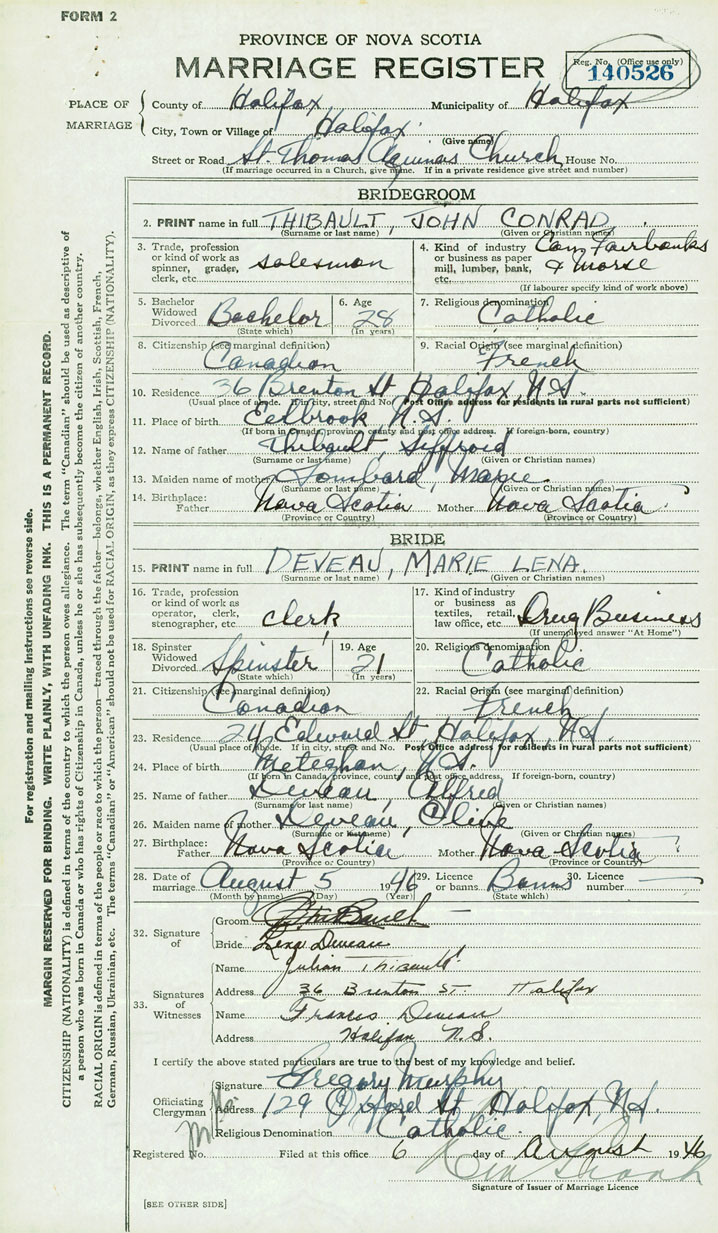 FORM 2
PROVINCE OF NOVA SCOTIA
MARRIAGE REGISTER
Reg. No. (Office use only)
140526
PLACE OF MARRIAGE
County of Halifax Municipality of Halifax
City, Town or Village of Halifax
(Give name)
Street or Road St. Thomas Aquinas Church House No.
(If marriage occurred in a Church, give name. If in a private residence give street and number)
BRIDEGROOM
2. PRINT name in full THIBAULT, JOHN CONRAD
(Surname or last name) (Given or Christian names)
3. Trade, profession or kind of work as spinner, grader, clerk, etc. salesman
4. Kind of industry or business as paper mill, lumber, bank, etc. Can Fairbanks & Morse
(If labourer specify kind of work above)
5. Bachelor Widowed Divorced Bachelor
(State which)
6. Age 28
(In years)
7. Religious denomination Catholic
8. Citizenship (see marginal definition) Canadian
9. Racial Origin (see marginal definition) French
10. Residence 36 Brenton St, Halifax, N.S.
(Usual place of abode. If in city, street and No. Post Office address for residents in rural parts not sufficient)
11. Place of birth Eelbrook N.S.
(If born in Canada, province, county and post office address. If foreign-born, country)
12. Name of father Thibault, Siffroid
(Surname or last name) (Given or Christian names)
13. Maiden name of mother Lombard, Marie
(Surname or last name) (Given or Christian names)
14. Birthplace: Father Nova Scotia Mother Nova Scotia
(Province or Country) (Province or Country)
BRIDE
15. PRINT name in full DEVEAU, MARIE LENA
(Surname or last name) (Given or Christian names)
16. Trade, profession or kind of work as operator, clerk, stenographer, etc. clerk
17. Kind of industry or business as textiles, retail, law office, etc. Drug Business
(If unemployed answer "At Home")
18. Spinster Widowed Divorced Spinster
(State which)
19. Age 21
(In years)
20. Religious denomination Catholic
21. Citizenship (see marginal definition) Canadian
22. Racial Origin (see marginal definition) French
23. Residence 24 Edward St, Halifax, N.S.
(Usual place of abode. If in city, street and No. Post Office address for residents in rural parts not sufficient)
24. Place of birth Meteghan, N.S.
(If born in Canada, province, county and post office address. If foreign-born, country)
25. Name of father Deveau, Alfred
(Surname or last name) (Given or Christian names)
26. Maiden name of mother Deveau,
(Surname or last name) (Given or Christian names)
27. Birthplace: Father Nova Scotia Mother Nova Scotia
(Province or Country) (Province or Country)
28. Date of marriage August 5 1946
(Month by name) (Day) (Year)
29. Licence or banns Banns
(State which)
30. Licence number
32. Signature of
Groom
Bride Lena Deveau
33. Signatures of Witnesses
Name Julian Thibault
Address 36 Brenton St. Halifax
Name Francis Deveau
Address Halifax N.S.
I certify the above stated particulars are true to the best of my knowledge and belief.
Officiating Clergyman
Signature Gregory Murphy
Address 129 Oxford St Halifax, N.S.
Religious Denomination Catholic
Registered No. Filed at this office 6 day of August 1946
Signature of Issuer of Marriage Licence
[SEE OTHER SIDE]
For registration and mailing instructions see reverse side.
MARGIN RESERVED FOR BINDING. WRITE PLAINLY, WITH UNFADING INK. THIS IS A PERMANENT RECORD.
CITIZENSHIP (NATIONALITY) is defined in terms of the country to which the person owes allegiance. The term "Canadian" should be used as descriptive of
a person who was born in Canada or who has rights of Citizenship in Canada, unless he or she has subsequently become the citizen of another country.
RACIAL ORIGIN is defined in terms of the people or race to which the person—traced through the father—belongs, whether English, Irish, Scottish, French,
German, Russian, Ukrainian, etc. The terms "Canadian" or "American" should not be used for RACIAL ORIGIN, as they express CITIZENSHIP (NATIONALITY).